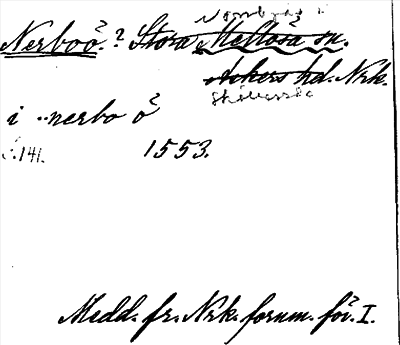 Nerboö? Stora Mellösa sn.
Askers hd. Nrk.
i nerbo ö
s. 141. 1553.
Medd. fr. Nrk. fornm. för. I.